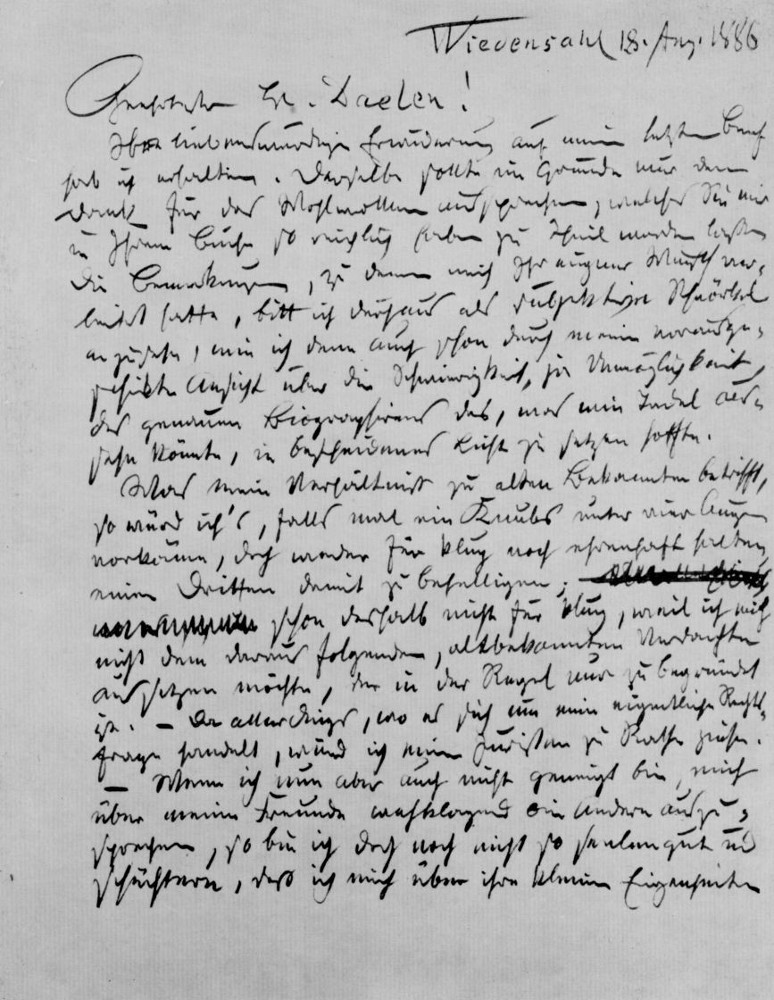 Wiedensahl 18. Aug. 1886
Geehrtester Hr. Daelen!
Ihre liebenswürdige Erwiderung auf meinen letzten Brief
hab ich erhalten. Derselbe sollte im Grunde nur dem
Dank für das Wohlwollen aussprechen, welches Sie mir
in Ihrem Buche so reichlich haben zu Theil werden laßen
Die Bemerkungen, zu denen mich Ihr eigner Wunsch ver-
leitet hatte, bitt ich durchaus als subjektive Schnörkel
anzusehn, wie ich denn auch schon durch meine vorausge-
schickte Ansicht über die Schwierigkeit, ja Unmöglichkeit,
des genauen Biographirens das, was wie Tadel aus-
sehn könnte, in bescheidenes Licht zu setzen hoffte.
Was mein Verhältniß zu alten Bekannten betrifft,
so würd ich's, falls mal ein Knubs unter vier Augen
vorkäme, doch weder für klug noch ehrenhaft halten,
einen Dritten damit zu behelligen;
schon deshalb nicht für klug, weil ich mich
nicht dem daraus folgenden, altbekannten Verdachte
aussetzen möchte, der in der Regel nur zu begründet
ist. — Da allerdings, wo es sich um eine eigentliche Rechts-
frage handelt, würd ich einen Juristen zu Rathe ziehn.
— Wenn ich nun aber auch nicht geneigt bin, mich
über meine Freunde wehklagend an Andere auszu-
sprechen, so bin ich doch noch nicht so seelengut und
schüchtern, daß ich mich über ihre kleinen Eigenheiten